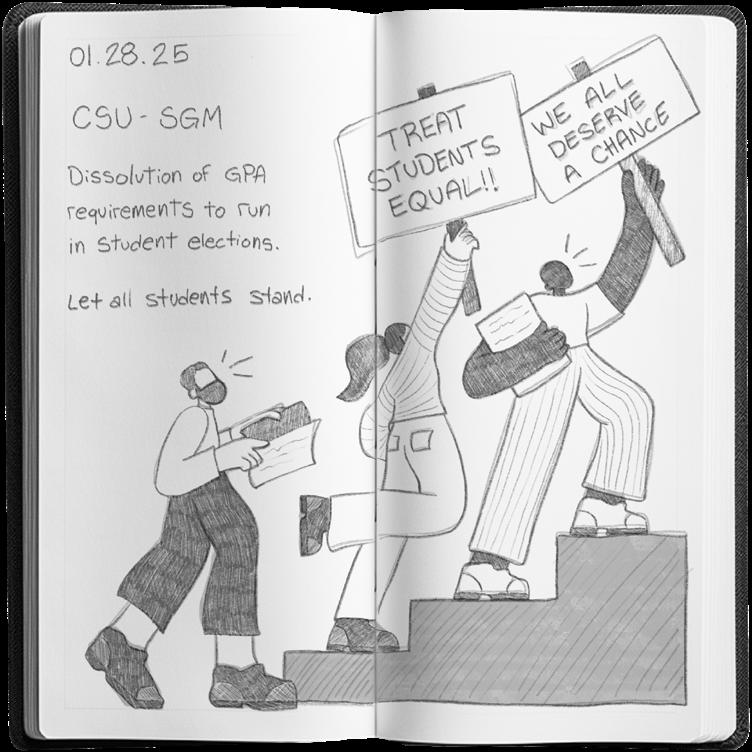 01.28.25
CSU - SGM
Dissolution of GPA
requirements to run
in student elections.
Let all students stand.
TREAT
STUDENTS
EQUAL!!
WE ALL
DESERVE
A CHANCE